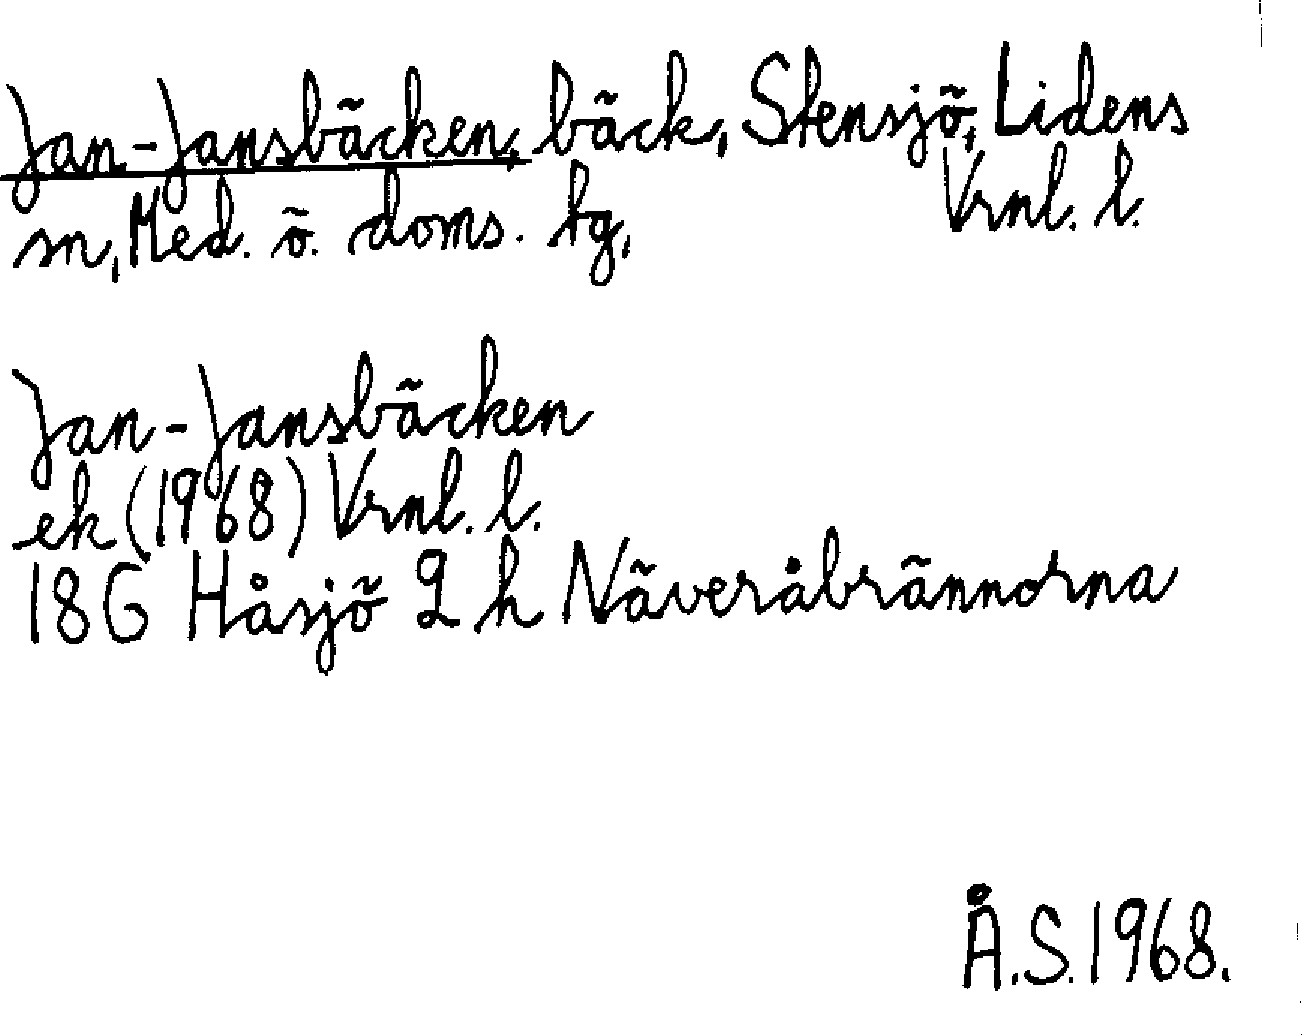 Jan-Jansbäcken, bäck, Stensjö, Lidens
sn, Med. ö. doms. tg, Vrnl. l.
Jan-Jansbäcken
ek (1968) Vrnl. l.
18G Håsjö 2 h Näveråbrännorna
Å.S. 1968.